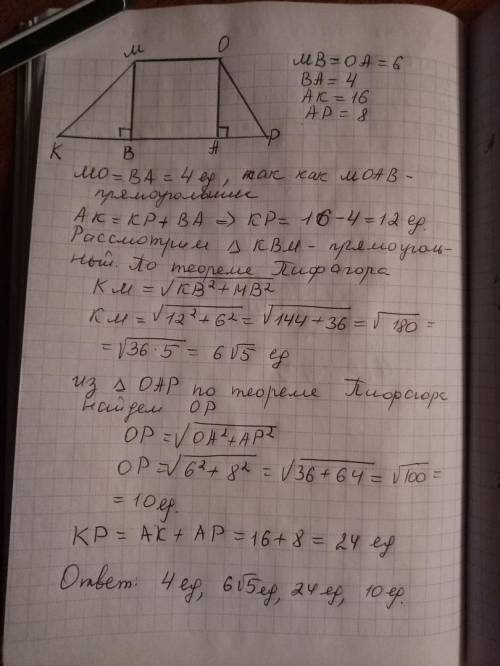 М О
К В А Р
MB = OA = 6
BA = 4
AK = 16
AP = 8
MO = BA = 4 ед, так как MOAB -
прямоугольник
AK = KP + BA => KP = 16 - 4 = 12 ед.
Рассмотрим Δ KBM - прямоуголь-
ный. По теореме Пифагора
KM = √KB² + MB²
KM = √12² + 6² = √144 + 36 = √180 =
= √36·5 = 6√5 ед
из Δ OAP по теореме Пифагора
найдем OP
OP = √OA² + AP²
OP = √6² + 8² = √36 + 64 = √100 =
= 10 ед.
KP = AK + AP = 16 + 8 = 24 ед
Ответ: 4 ед, 6√5 ед, 24 ед, 10 ед.